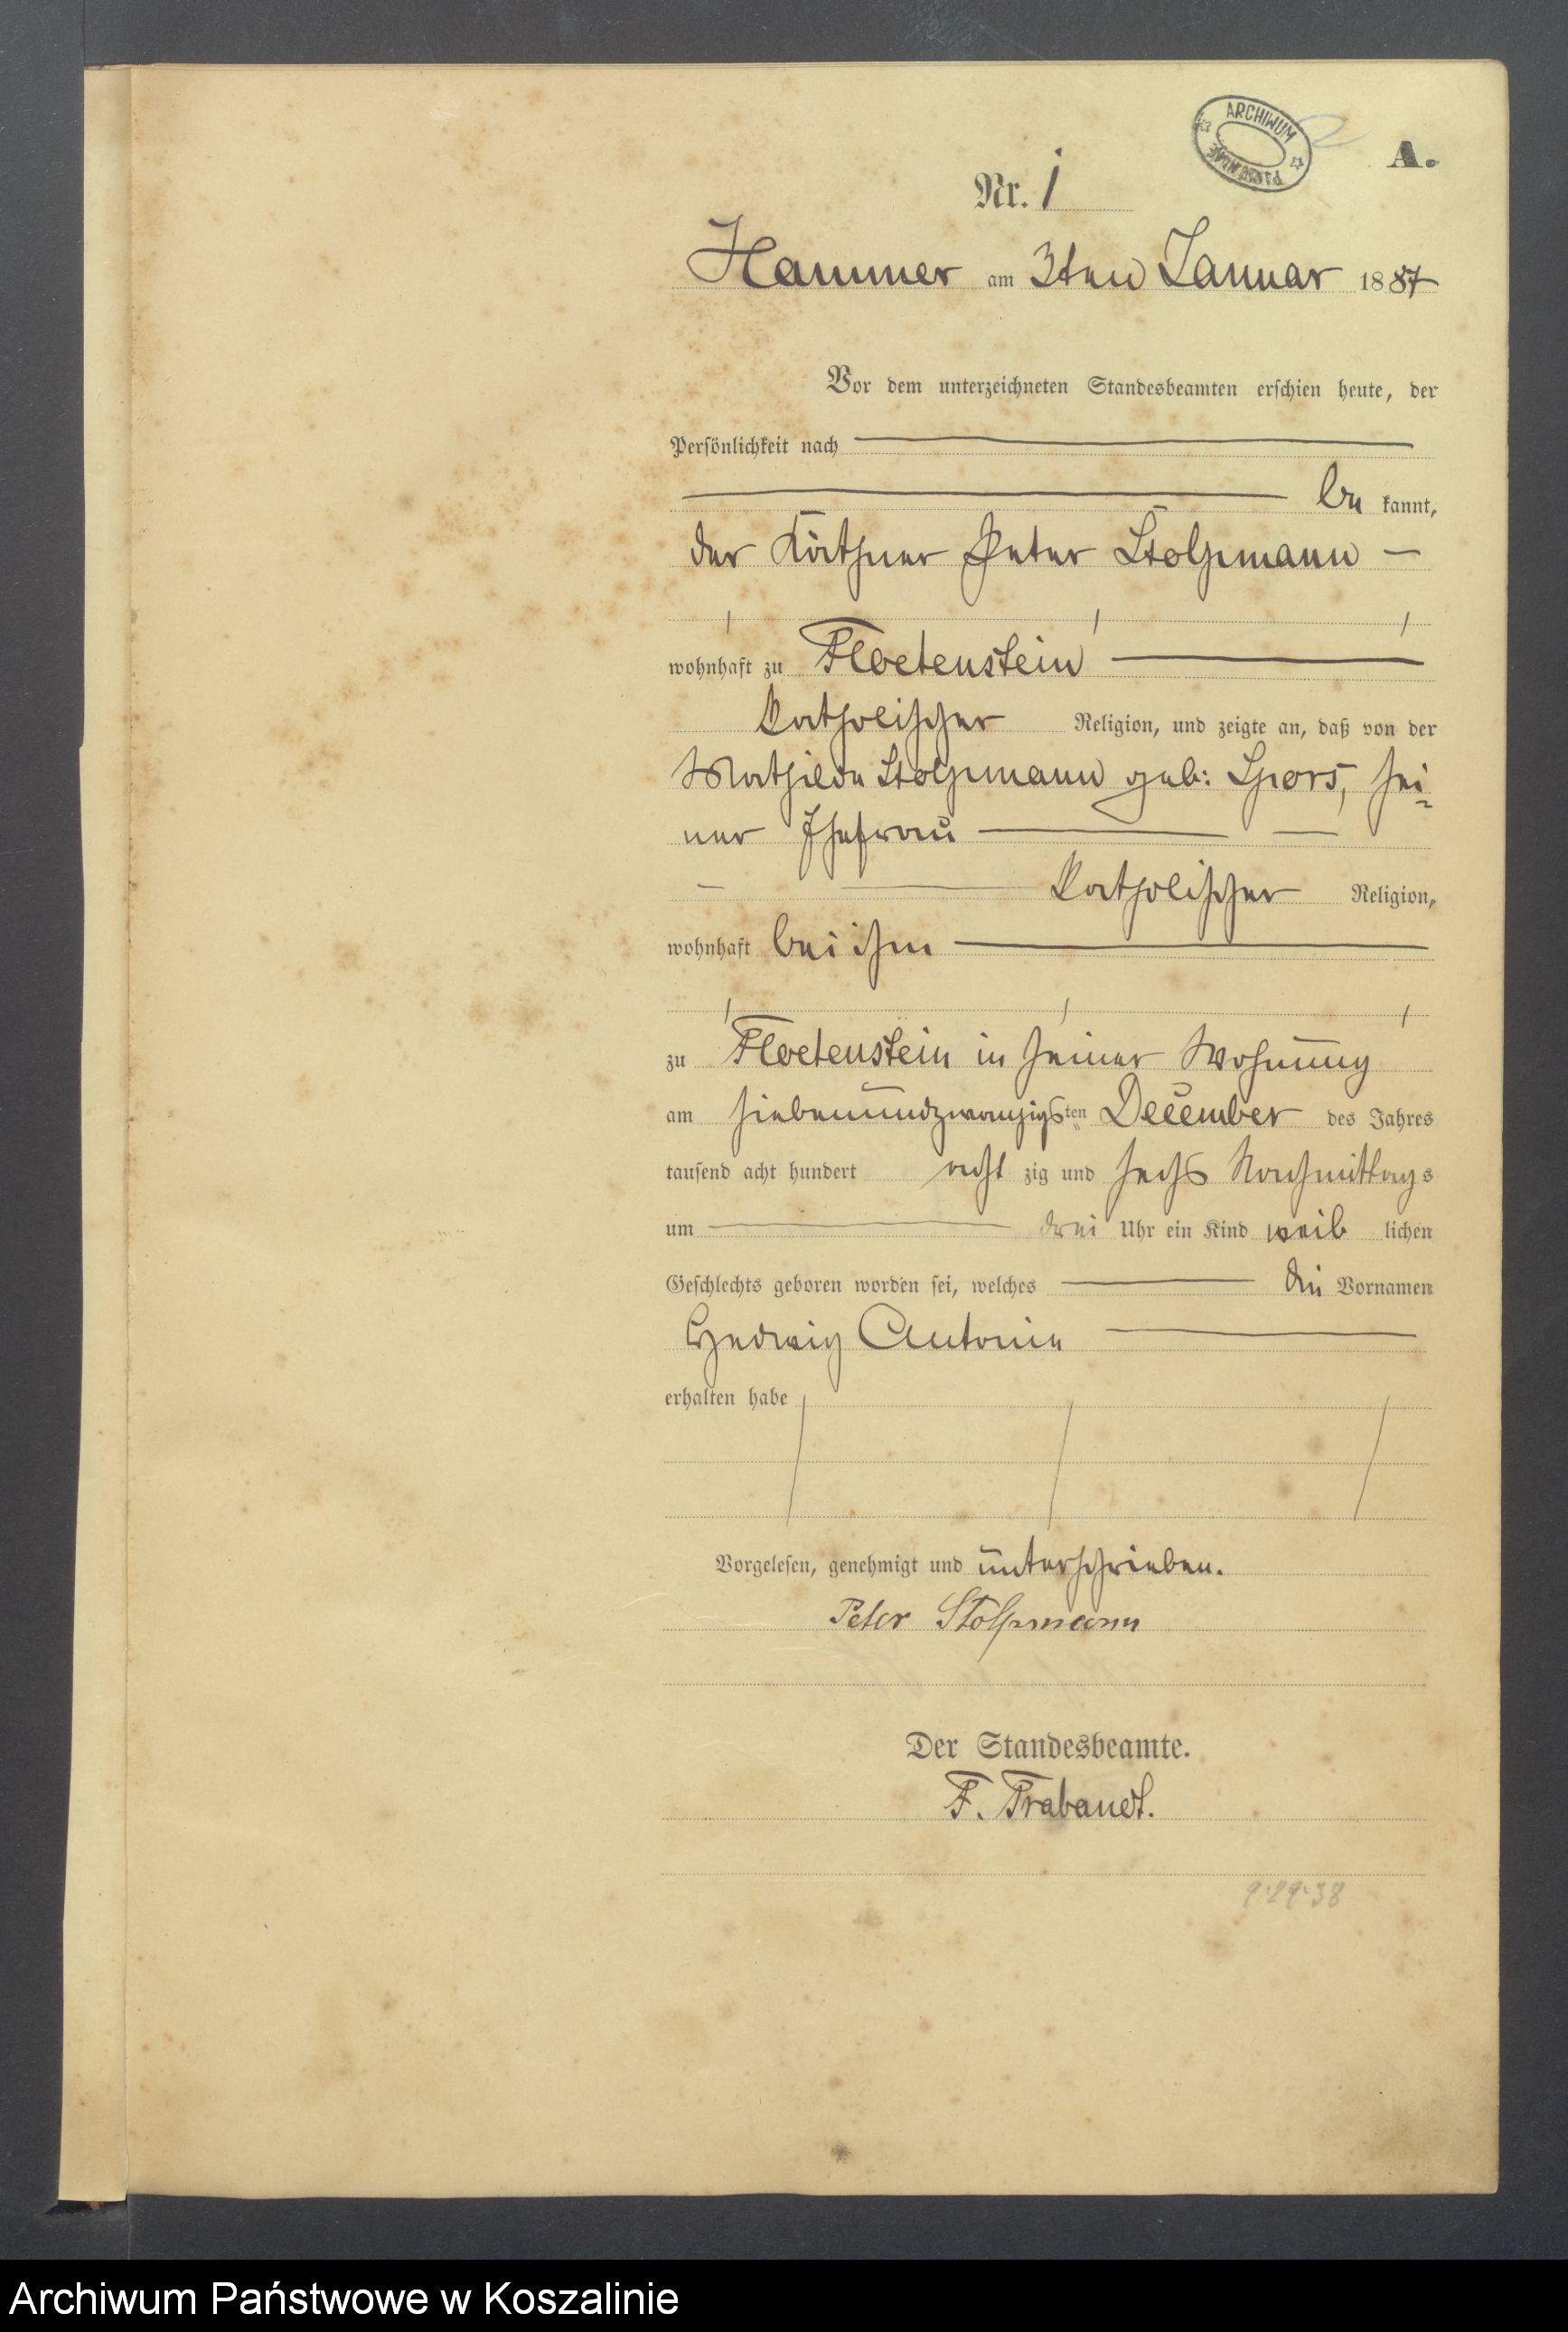 ARCHIWUM
PAŃSTWOWE
A.
Nr. 1
Hammer am 3ten Januar 1887
Vor dem unterzeichneten Standesbeamten erschien heute, der
Persönlichkeit nach
be kannt,
der Käthner Peter Stolpmann
wohnhaft zu Floetenstein
katholischer Religion, und zeigte an, daß von der
Mathilde Stolpmann geb: Spors, sei-
ner Ehefrau
katholischer Religion,
wohnhaft bei ihm
zu Floetenstein in seiner Wohnung
am siebenundzwanzigsten December des Jahres
tausend acht hundert acht zig und sechs Nachmittags
um drei Uhr ein Kind weib lichen
Geschlechts geboren worden sei, welches die Vornamen
Hedwig Antonie
erhalten habe
Vorgelesen, genehmigt und unterschrieben.
Peter Stolpmann
Der Standesbeamte.
F. Trabandt.
9.29.38
Archiwum Państwowe w Koszalinie